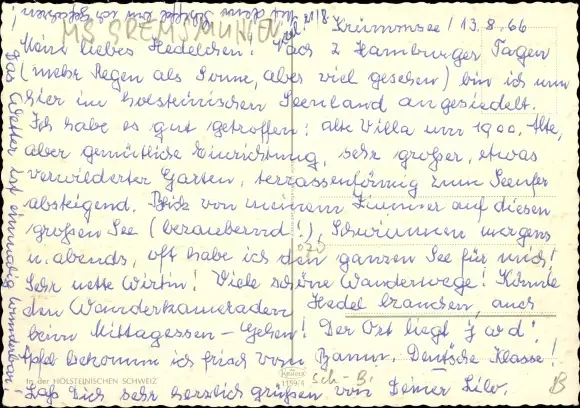 Krummsee / 13.8.66
MS GREMSMÜHLEN
Meine liebes Hedelchen! Nach 2 Hamburger Tagen
(mehr Regen als Sonne, aber viel gesehen) bin ich nun
hier im holsteinischen Seenland angesiedelt.
Ich habe es gut getroffen: alte Villa um 1900, alte,
aber gemütliche Einrichtung, sehr großer, etwas
verwilderter Garten, terrassenförmig zum Seeufer
absteigend. Blick von meinem Zimmer auf diesen
großen See (bezaubernd!), Schwimmen morgens
u. abends, oft habe ich den ganzen See für mich!
Sehr nette Wirtin! Viele schöne Wanderwege! Könnte
den Wanderkameraden Hedel brauchen, auch
beim Mittagessen-Gehen! Der Ort liegt
Äpfel bekomm ich frisch vom Baum, Deutsche Klasse!
In der HOLSTEINISCHEN SCHWEIZ
1159/4
Sch.-B.
B
- Laß Dich sehr herzlich grüßen von Deiner Lilo.
Das Wetter ist